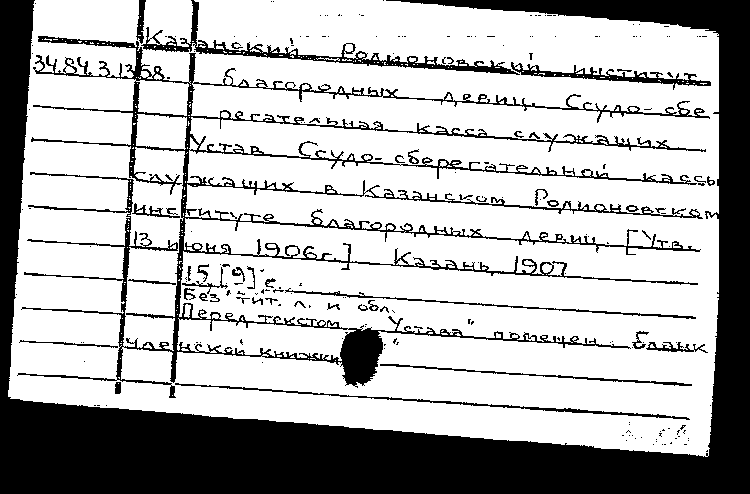 Казанский Родионовский институт
34.84.3.1368. благородных девиц. Ссудо-сбе-
регательная касса служащих
Устав Ссудо-сберегательной кассы
служащих в Казанском Родионовском
институте благородных девиц. [Утв.
13 июня 1906г.] Казань, 1907
15 [9] с.
Без тит. л. и обл.
Перед текстом „Устава" помещен „бланк
членской книжки"